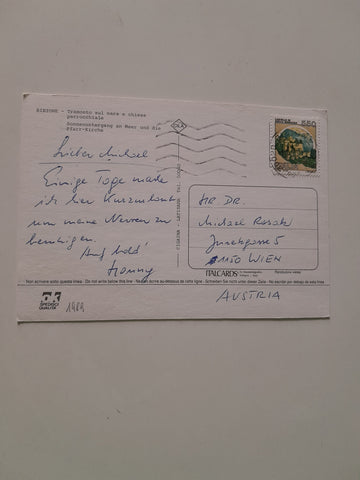 BIBIONE - Tramonto sul mare e chiesa
parrocchiale
Sonnenuntergang am Meer und die
Pfarr-Kirche
550
Lieber Michael
Einige Tage mache
ich hier Kurzurlaub
um meine Nerven zu
beruhigen.
Auf bald
HR DR.
Michael
5
1150 WIEN
AUSTRIA
ITALCARDS
Riproduzione vietata
Non scrivere sotto questa linea - Do not write below this line - Ne rien écrire au-dessous de cette ligne - Schreiben Sie nicht unter dieser Zeile - No escribir por debajo de esta línea
OK
1989